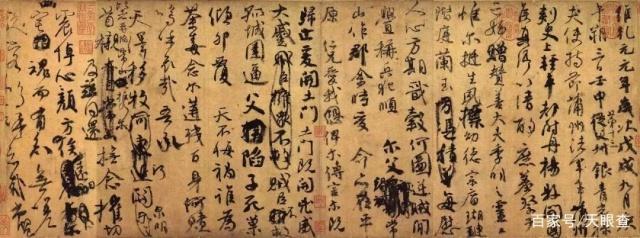 維乾元元年歲次戊戌九月
午朔三日壬申第十三叔銀青光
夫使持節蒲州諸軍事蒲州
刺史上輕車都尉丹楊縣開
侯真卿以清酌庶羞祭于
亡姪贈贊善大夫季明之靈曰
惟爾挺生夙標幼德宗廟瑚璉
階庭蘭玉每慰
人心方期戩穀何圖逆賊間
釁稱兵犯順爾父
山作郡余時受命亦在平
原仁兄愛我俾爾傳言爾既
歸止爰開土門土門既開凶威
大蹙賊臣不救
孤城圍逼父陷子死巢
傾卵覆天不悔禍誰為
荼毒念爾遘殘百身何贖
嗚乎哀哉吾承
天澤移牧河關爾明
首櫬及茲同還撫念摧切
震悼心顏方俟
魂而有知無嗟
百家号/天眼查